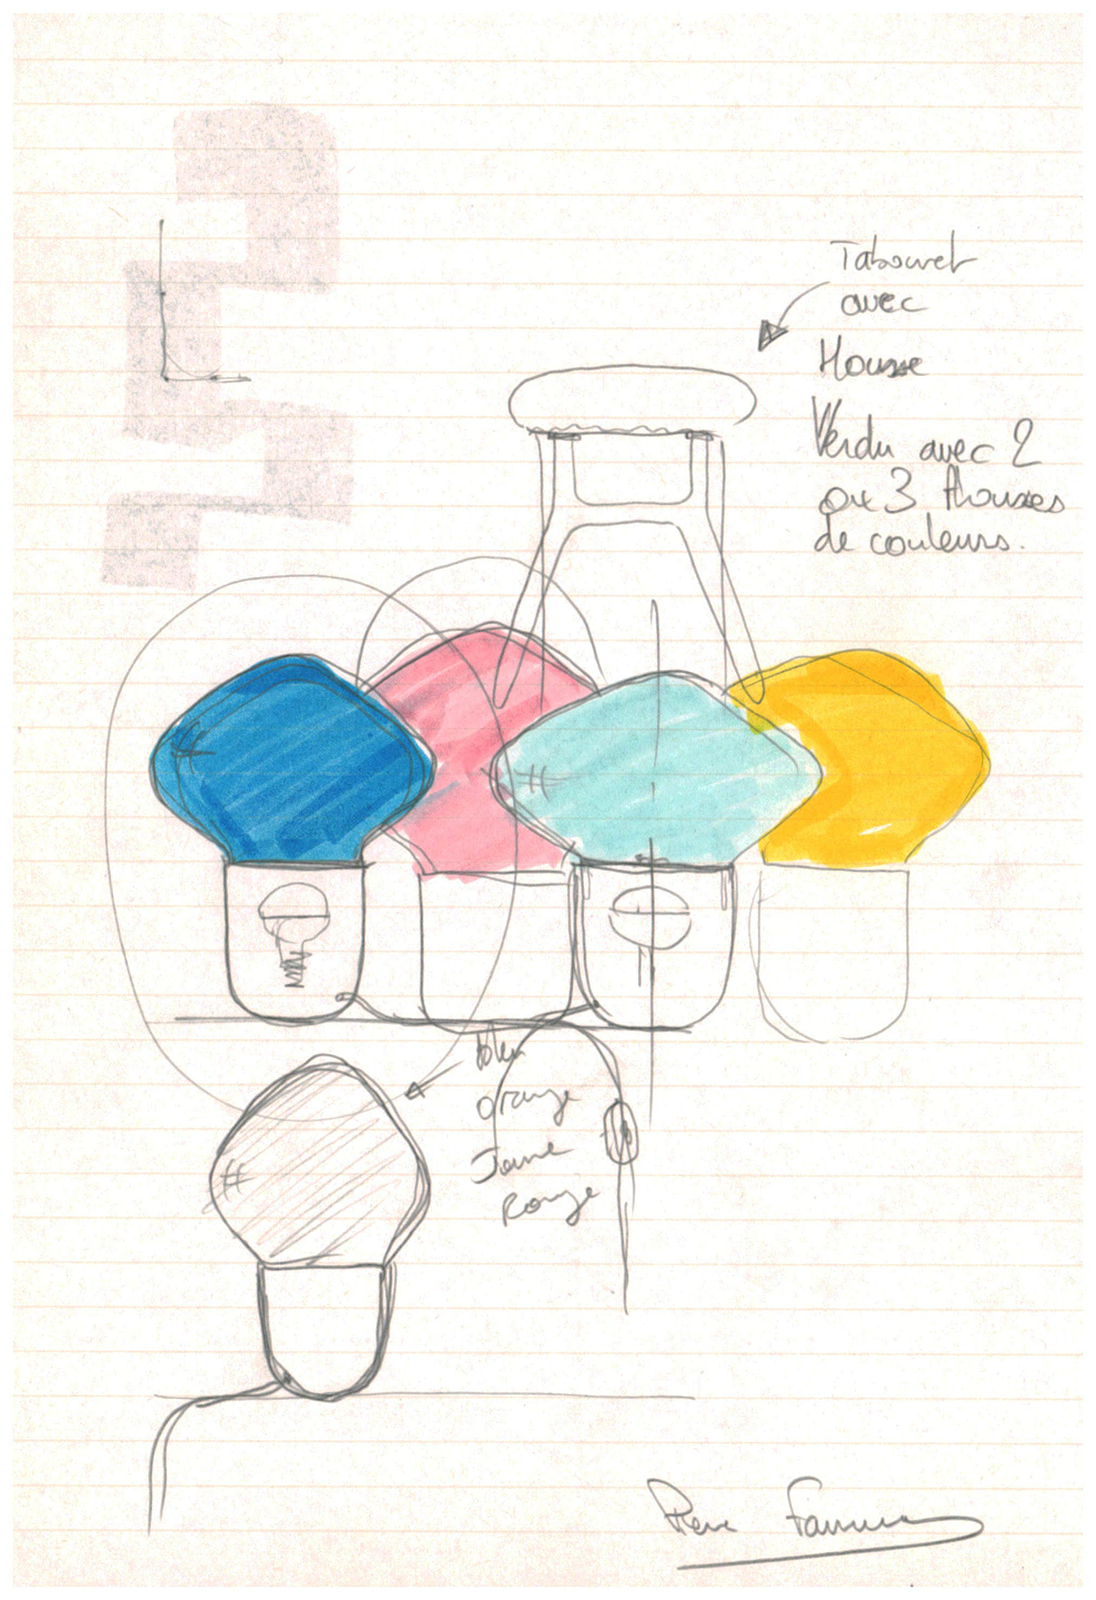 Tabouret
avec
Housse
Vendu avec 2
ou 3 Housses
de couleurs.
bleu
orange
Jaune
Rouge
Pierre